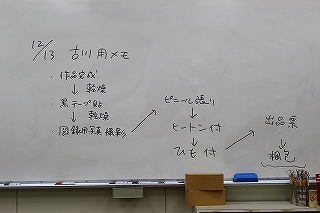 12/13 古川用メモ
・作品完成!
↓ 乾燥
・黒テープ貼
↓ 乾燥
・図録用写真撮影
ビニール張り
↓
ヒートン付
↓
ひも付
出品票
↓
梱包